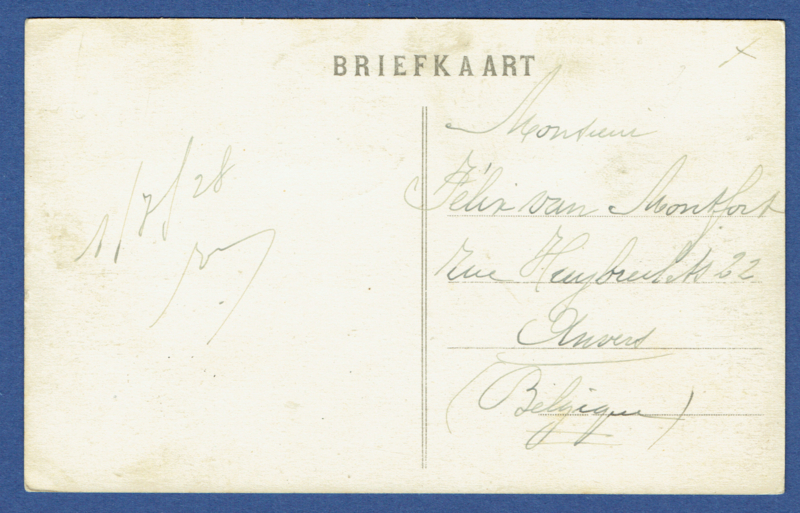 BRIEFKAART
Monsieur
Félix van Montfort
rue Huybrechts 22
Anvers
(Belgique)
1/7/28